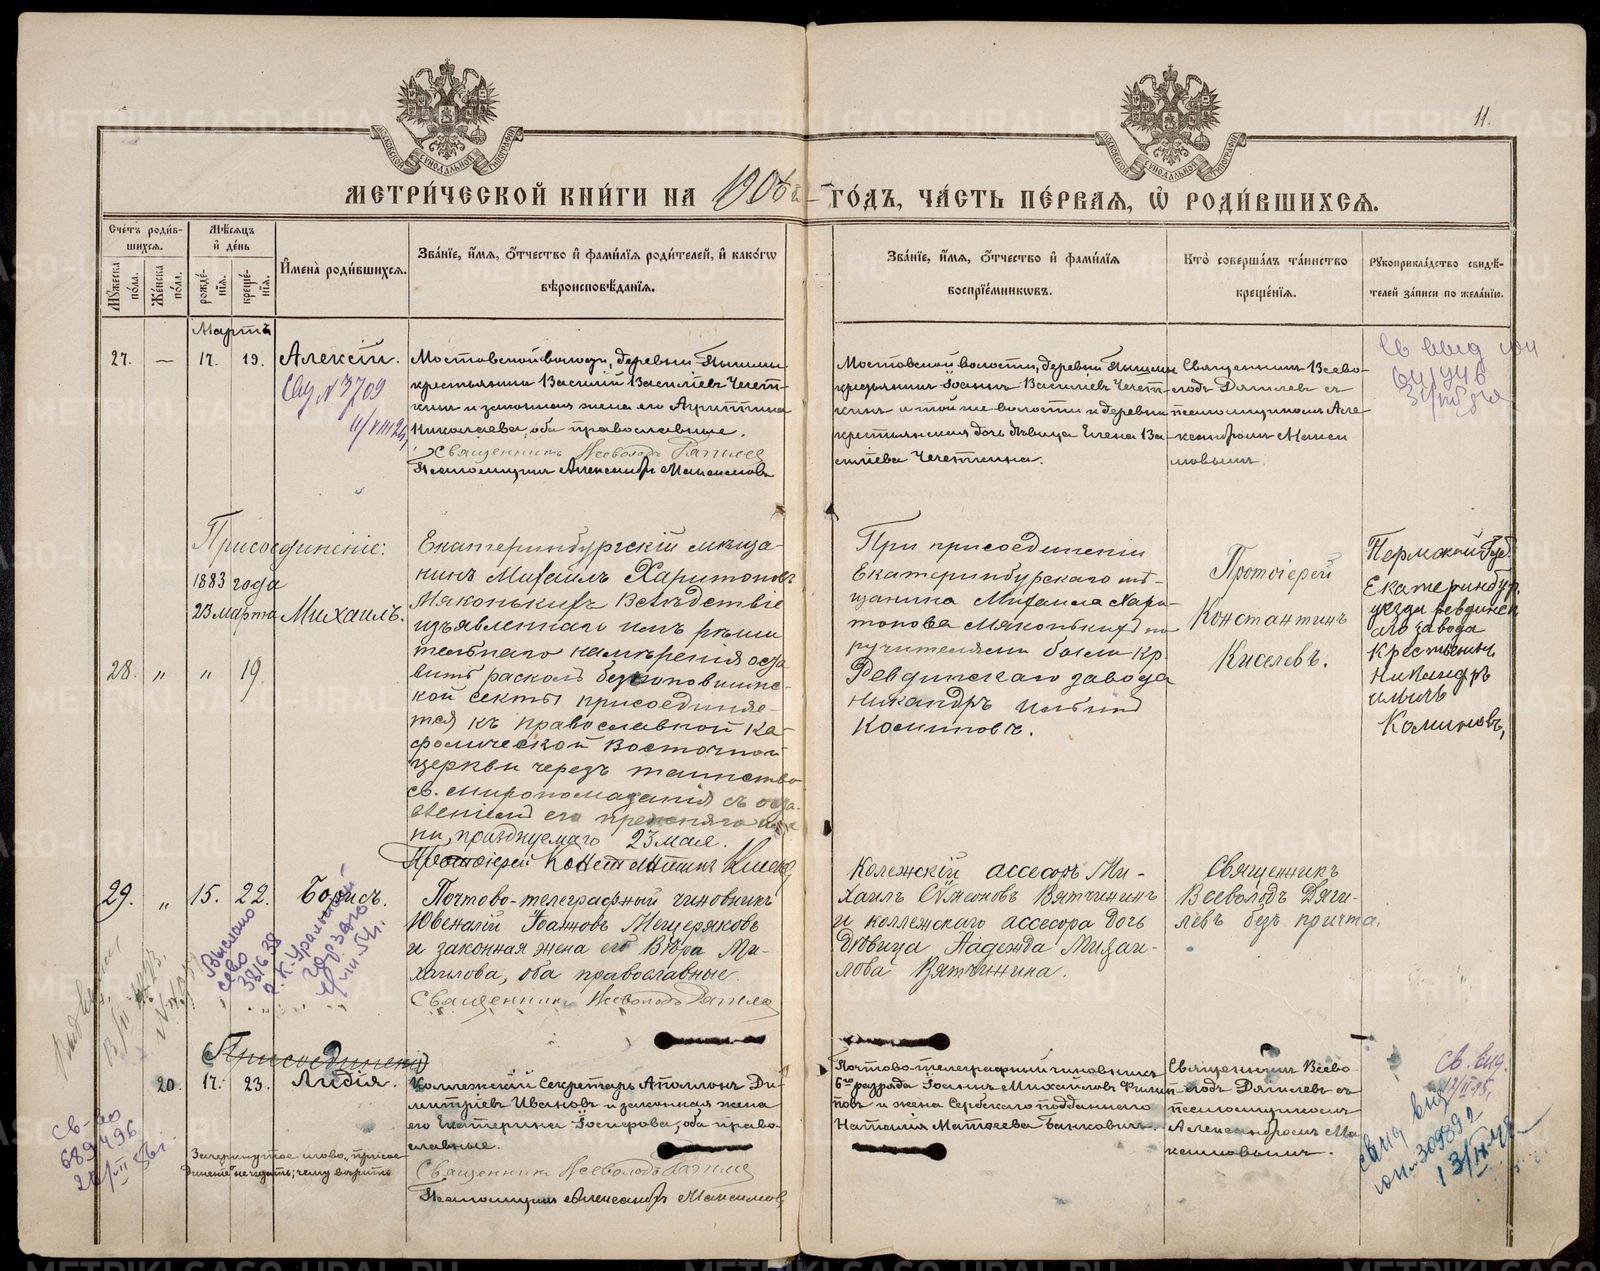 11.
МЕТРИ́ЧЕСКОЙ КНИ́ГИ НА 1906 г. ГО́ДЪ, ЧА́СТЬ ПЕ́РВАЯ, Ѽ РОДИ́ВШИХСѦ.
Сче́тъ роди́в-
шихся.
Мѣ́сяцъ
и҆ де́нь
Мꙋ́жеска
по́ла.
Же́нска
по́ла.
рожде́-
нїя.
креще́-
нїя.
И҆мена̀ роди́вшихся.
Зва́нїе, и҆́мя, ѻ҆́тчество и҆ фами́лїя роди́телей, и҆ како́гѡ
вѣроисповѣ́данїя.
Зва́нїе, и҆́мя, ѻ҆́тчество и҆ фами́лїя
воспрїе́мникѡвъ.
Кто̀ соверша́лъ та́инство
креще́нїя.
Рꙋкоприкла́дство свидѣ́-
телей за́писи по жела́нїю.
Мартъ
27. — 17. 19. Алексій.
Мостовской волости, деревни Пышмы
крестьянинъ Василій Васильевъ Чечет-
кинъ и законная жена его Агриппина
Николаева, оба православные.
Священникъ Всеволодъ Дягилев
Псаломщикъ Александръ Максимовъ
Мостовской волости, деревни Пышмы
крестьянинъ Іоаннъ Васильевъ Чечет-
кинъ и той же волости и деревни
крестьянская дочь дѣвица Елена Ва-
сильева Чечеткина.
Священникъ Всево-
лодъ Дягилевъ съ
псаломщикомъ Але-
ксандромъ Макси
мовымъ
Присоединеніе:
1883 года
23 марта Михаилъ.
28. „ „ 19.
Екатеринбургскій мѣща-
нинъ Михаилъ Харитоновъ
Мяконькихъ вслѣдствіе
изъявленнаго имъ рѣши
тельнаго намѣренія оста
вить расколъ безпоповщинс-
кой секты присоединяе-
тся къ православной Ка-
фолической Восточной
церкви чрезъ таинство
св. миропомазанія съ оста-
вленіемъ его прежняго име
ни, празднуемаго 23 мая.
Протоіерей Константинъ Киселев
При присоединеніи
Екатеринбургскаго мѣ-
щанина Михаила Хари-
тонова Мяконькихъ по
ручителями были кр.
Ревдинскаго завода
Никандръ Ильинъ
Колиновъ.
Протоіерей
Константинъ
Киселевъ.
Пермской Губ.
Екатеринбур.
уезда Ревдинск
аго завода
крестьянинъ
Никандръ
Ильичъ
Калиновъ,
29. „ 15. 22. Борисъ.
Почтово-телеграфный чиновникъ
Ювеналій Іоанновъ Мещеряковъ
и законная жена его Вѣра Ми-
хаилова, оба православные.
Священникъ Всеволодъ Дягилев
Колежскій ассесоръ Ми-
хаилъ Симеоновъ Вятчининъ
и коллежскаго ассесора дочь
дѣвица Надежда Михаи-
лова Вятчинина.
Священникъ
Всеволодъ Дяги-
левъ безъ причта.
(Присоединеніе)
20. 17. 23. Лидія.
Коллежскій Секретарь Аполлонъ Ди-
митріевъ Ивановъ и законная жена
его Екатерина Іосифова, оба право-
славные.
Священникъ Всеволодъ Дягилев
Псаломщикъ Александръ Максимов
Почтово-телеграфный чиновникъ
6го разряда Іоаннъ Михаиловъ Филип
повъ и жена Сербскаго подданнаго
Наталія Матѳеева Банковичъ.
Священникъ Всево-
лодъ Дягилевъ съ
псаломщикомъ
Александромъ Ма
ксимовымъ.
Зачеркнутое слово „присое
диненіе" не читать, чему вѣрить
Св-во
689496